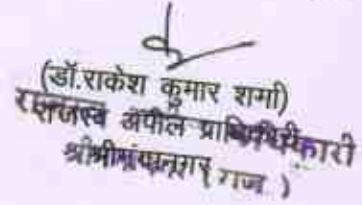 (डॉ.राकेश कुमार शर्मा)
राजस्व अपील प्राधिकारी
श्रीगंगानगर ( राज. )